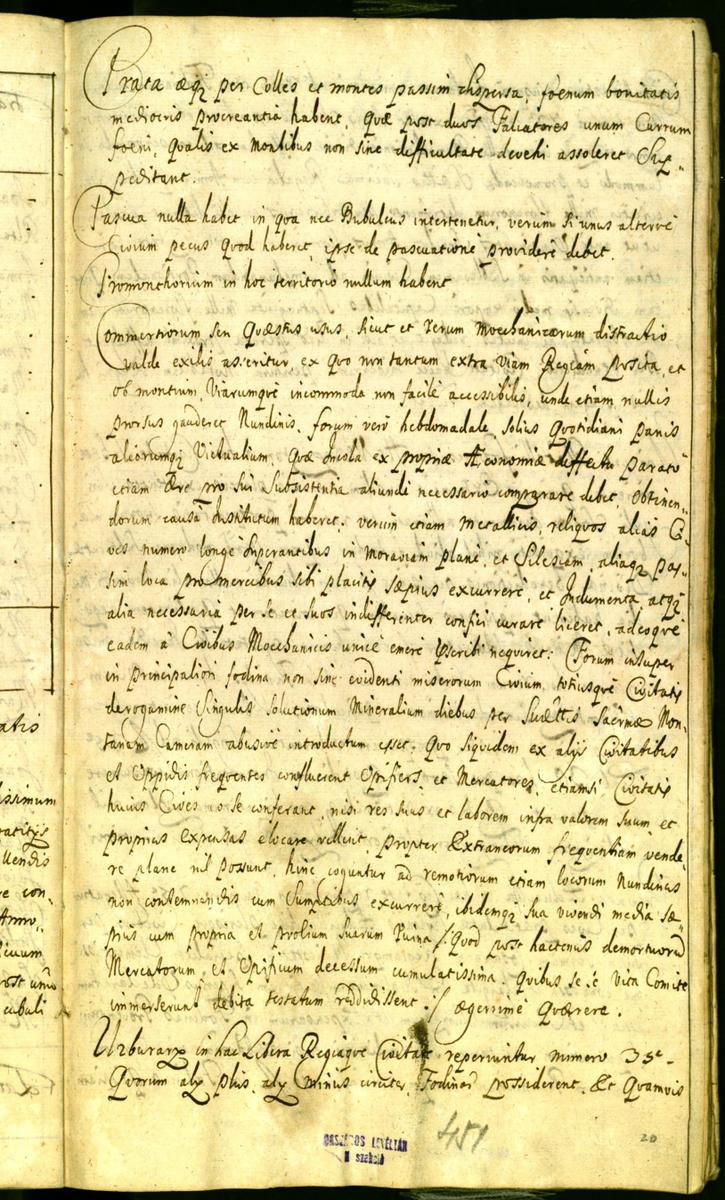 Prata æq3 per Colles et montes passim dispersa, foenum bonitatis
mediocris procreantia habent, quæ post duos Falcatores unum Currum
foeni, qualis ex montibus non sine difficultate devehi assoleret Sup„
peditant.
Pascua nulla habet in qua nec Bubulcus interteneatur, verum si unus alterve
Civium pecus quod haberet, ipse de pascuatione providere debet.
Promonthorium in hoc territorio nullum habent
Commertiorum seu Quæstus usus, sicut et rerum Mechanicarum distractio
valde exilis asseritur, ex quo non tantum extra viam Regiam posita, et
ob montium, Viarumque incommoda non facile accessibilis, unde etiam nullis
prorsus gauderet Nundinis, forum vero hebdomadale, solius quotidiani panis
aliorumq3 Victualium, quæ Incola ex propriæ Æconomiæ deffectu parato
etiam Ære pro sui Subsistentia aliunde necessario comparare debet, obtinen„
dorum causa Institutum haberet. verum etiam metallicis, reliquos alias Ci„
ves numero longe Superantibus in Moraviam plane, et Silesiam, aliaq3 pas„
sim loca pro mercibus sibi placitis sæpius excurrere, et Indumenta atq3
alia necessaria per se et suos indifferenter confici curare liceret, adeoque
eadem à Civibus Mechanicis unice emere præscribi nequiret: Forum insuper
in principaliori fodina non sine evidenti miserorum Civium, totiusque Civitatis
derogamine Singulis solutionum Mineralium diebus per Suæ Mttis Sacrmæ Mon„
tanam Cameram abusive introductum esset. Quo siquidem ex alijs Civitatibus
et Oppidis frequentes confluerent Opifices et Mercatores, etiamsi Civitatis
huius Cives eo se conferant, nisi res suas et laborem infra valorem suum, et
proprias expensas elocare vellent, propter Extraneorum frequentiam vende„
re plane nil possunt, hinc coguntur ad remotiorum etiam locorum Nundinas
non contemnendis cum Sumptibus excurrere, ibidemq3 sua vivendi media sæ„
pius cum propria et prolium suarum Ruina /: Quod post hactenus demortuorum
Mercatorum, et Opificum decessum cumulatissima, quibus sese vita Comite
immerserunt debita testatum reddidissent :/ ægerrime quærere.
Urburarij in hac Libera Regiaque Civitate reperiuntur numero 35.
Quorum alij plus, alij minus circiter Fodinas possiderent. Et Quamvis
451
20
ORSZÁGOS LEVÉLTÁR
II szekció